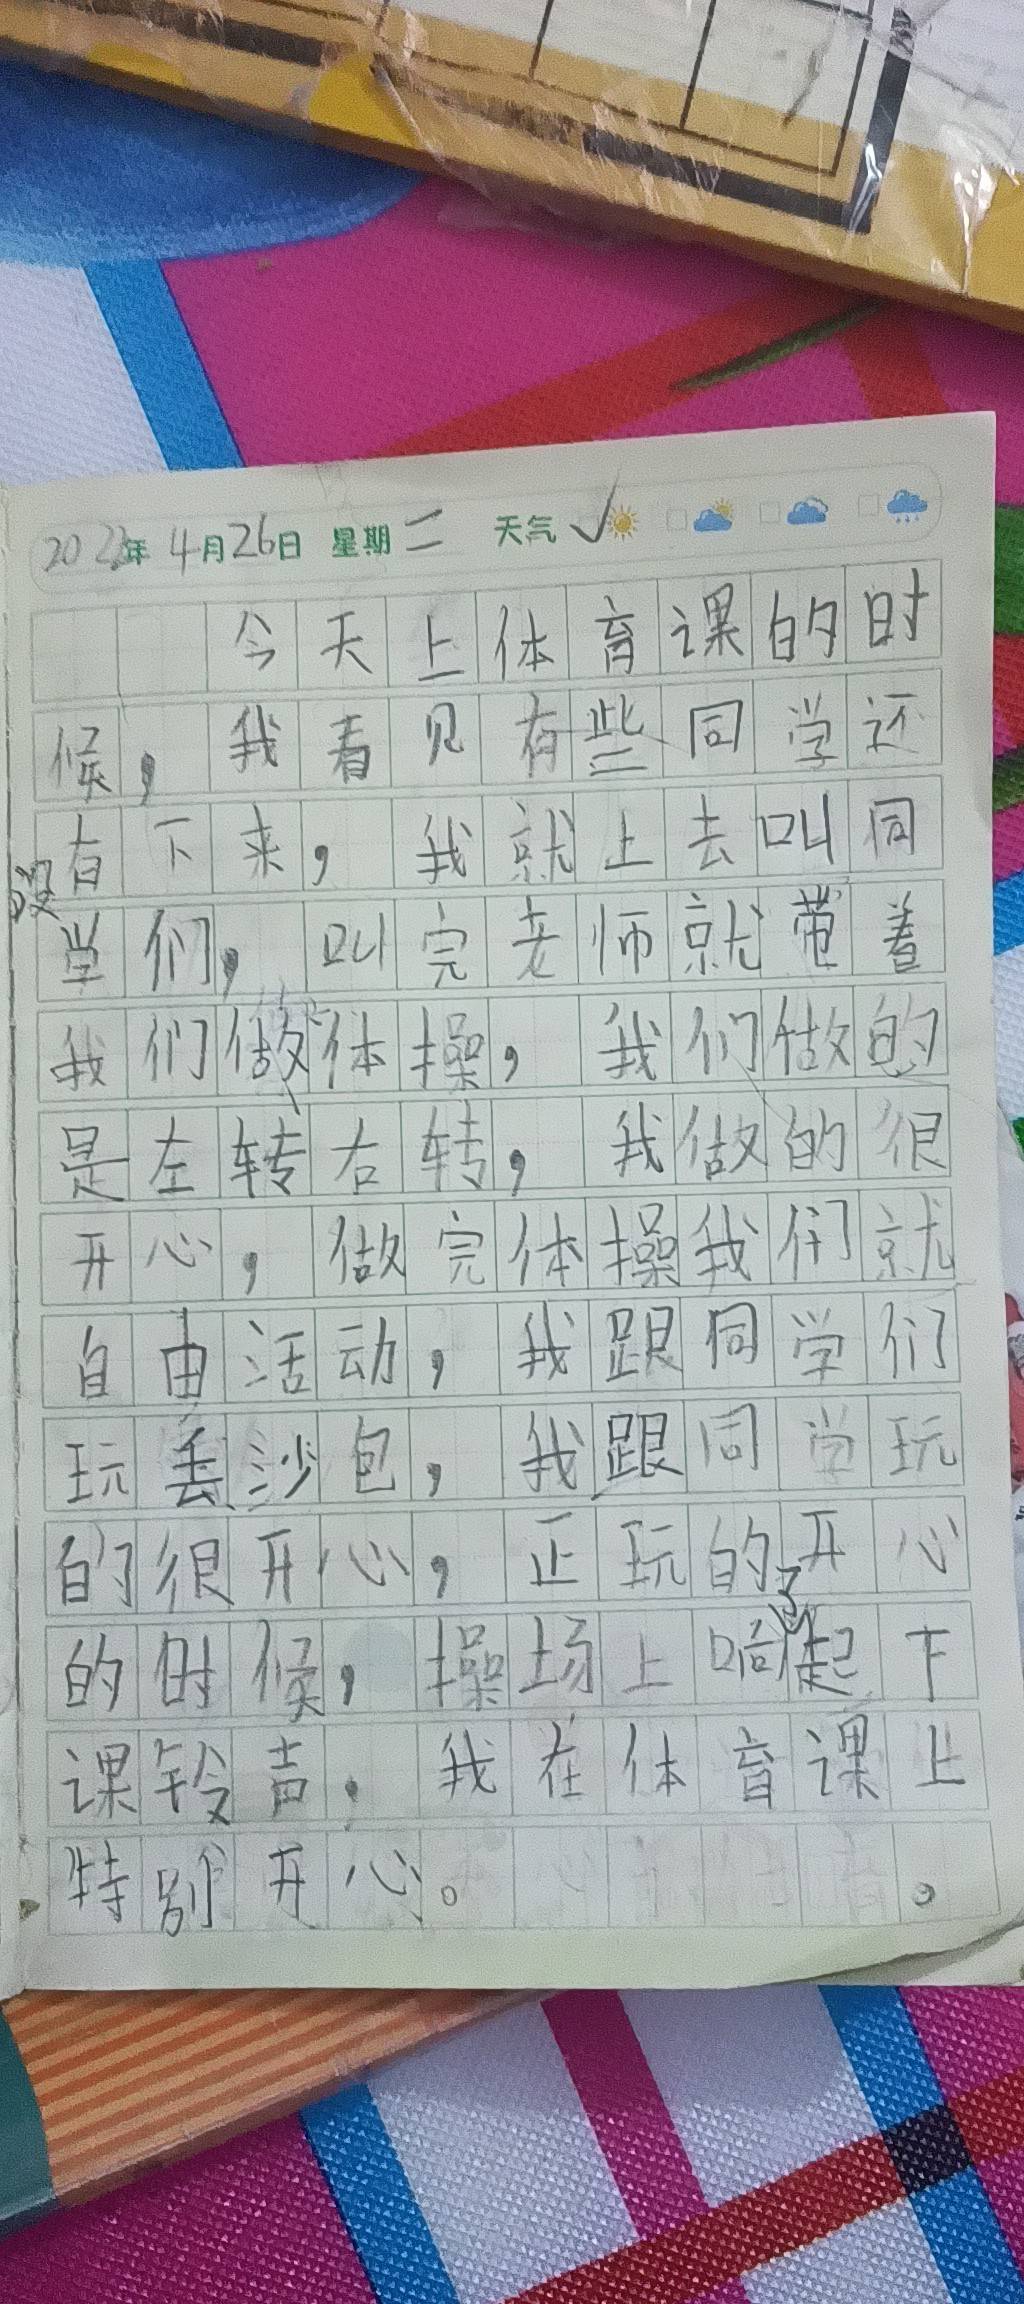 2022年 4月26日 星期二 天气 √
今天上体育课的时
候，我看见有些同学还
没有下来，我就上去叫同
学们，叫完老师就带着
我们做体操，我们做的
是左转右转，我做的很
开心，做完体操我们就
自由活动，我跟同学们
玩丢沙包，我跟同学玩
的很开心，正玩的开心
的时候，操场上响起了下
课铃声，我在体育课上
特别开心。。